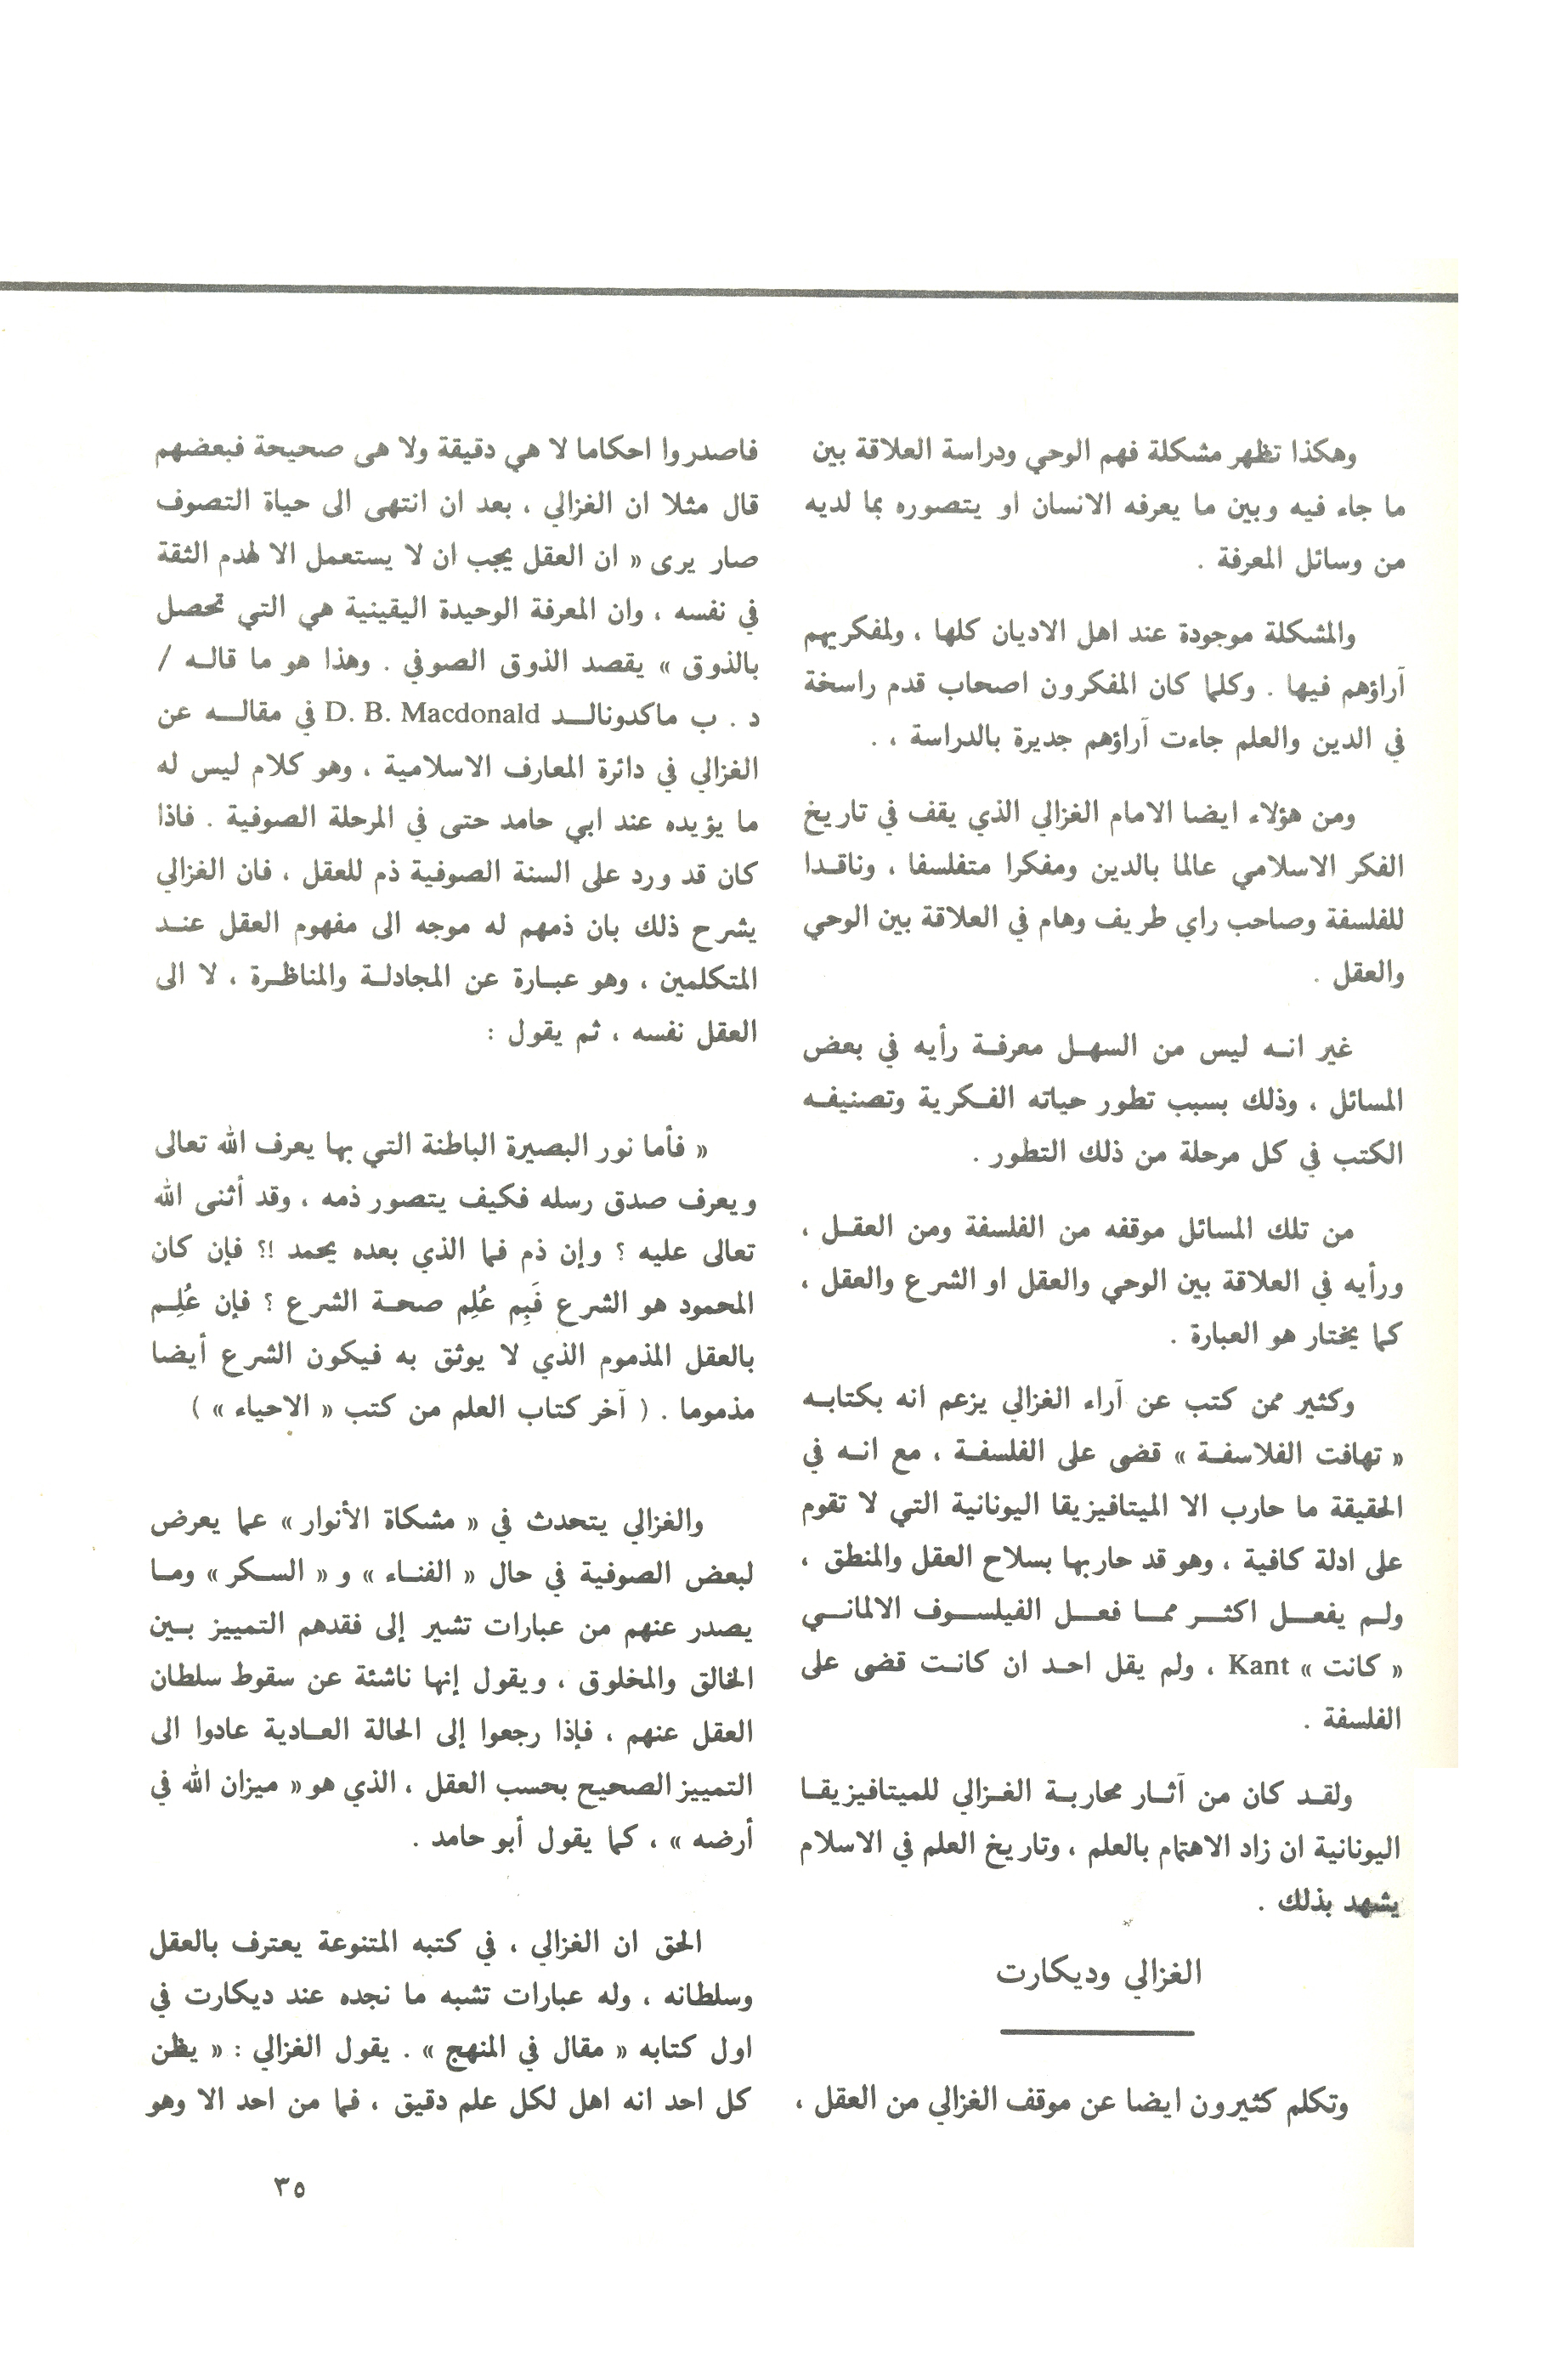 وهكذا تظهر مشكلة فهم الوحي ودراسة العلاقة بين
ما جاء فيه وبين ما يعرفه الانسان او يتصوره بما لديه
من وسائل المعرفة .
والمشكلة موجودة عند اهل الاديان كلها ، ولمفكريهم
آراؤهم فيها . وكلما كان المفكرون اصحاب قدم راسخة
في الدين والعلم جاءت آراؤهم جديرة بالدراسة ، .
ومن هؤلاء ايضا الامام الغزالي الذي يقف في تاريخ
الفكر الاسلامي عالما بالدين ومفكرا متفلسفا ، وناقدا
للفلسفة وصاحب راي طريف وهام في العلاقة بين الوحي
والعقل .
غير انه ليس من السهل معرفة رأيه في بعض
المسائل ، وذلك بسبب تطور حياته الفكرية وتصنيفه
الكتب في كل مرحلة من ذلك التطور .
من تلك المسائل موقفه من الفلسفة ومن العقل ،
ورأيه في العلاقة بين الوحي والعقل او الشرع والعقل ،
كما يختار هو العبارة .
وكثير ممن كتب عن آراء الغزالي يزعم انه بكتابه
« تهافت الفلاسفة » قضى على الفلسفة ، مع انه في
الحقيقة ما حارب الا الميتافيزيقا اليونانية التي لا تقوم
على ادلة كافية ، وهو قد حاربها بسلاح العقل والمنطق ،
ولم يفعل اكثر مما فعل الفيلسوف الالماني
« كانت » Kant ، ولم يقل احد ان كانت قضى على
الفلسفة .
ولقد كان من آثار محاربة الغزالي للميتافيزيقا
اليونانية ان زاد الاهتمام بالعلم ، وتاريخ العلم في الاسلام
يشهد بذلك .
الغزالي وديكارت
وتكلم كثيرون ايضا عن موقف الغزالي من العقل ،
فاصدروا احكاما لا هي دقيقة ولا هى صحيحة فبعضهم
قال مثلا ان الغزالي ، بعد ان انتهى الى حياة التصوف
صار يرى « ان العقل يجب ان لا يستعمل الا لهدم الثقة
في نفسه ، وان المعرفة الوحيدة اليقينية هي التي تحصل
بالذوق » يقصد الذوق الصوفي . وهذا هو ما قاله /
د . ب ماكدونالد D. B. Macdonald في مقاله عن
الغزالي في دائرة المعارف الاسلامية ، وهو كلام ليس له
ما يؤيده عند ابي حامد حتى في المرحلة الصوفية . فاذا
كان قد ورد على السنة الصوفية ذم للعقل ، فان الغزالي
يشرح ذلك بان ذمهم له موجه الى مفهوم العقل عند
المتكلمين ، وهو عبارة عن المجادلة والمناظرة ، لا الى
العقل نفسه ، ثم يقول :
« فأما نور البصيرة الباطنة التي بها يعرف الله تعالى
ويعرف صدق رسله فكيف يتصور ذمه ، وقد أثنى الله
تعالى عليه ؟ وإن ذم فما الذي بعده يحمد !؟ فإن كان
المحمود هو الشرع فَبِم عُلِم صحة الشرع ؟ فإن عُلِم
بالعقل المذموم الذي لا يوثق به فيكون الشرع أيضا
مذموما . ( آخر كتاب العلم من كتب « الاحياء » )
والغزالي يتحدث في « مشكاة الأنوار » عما يعرض
لبعض الصوفية في حال « الفناء » و « السكر » وما
يصدر عنهم من عبارات تشير إلى فقدهم التمييز بين
الخالق والمخلوق ، ويقول إنها ناشئة عن سقوط سلطان
العقل عنهم ، فإذا رجعوا إلى الحالة العادية عادوا الى
التمييز الصحيح بحسب العقل ، الذي هو « ميزان الله في
أرضه » ، كما يقول أبو حامد .
الحق ان الغزالي ، في كتبه المتنوعة يعترف بالعقل
وسلطانه ، وله عبارات تشبه ما نجده عند ديكارت في
اول كتابه « مقال في المنهج » . يقول الغزالي : « يظن
كل احد انه اهل لكل علم دقيق ، فما من احد الا وهو
٣٥